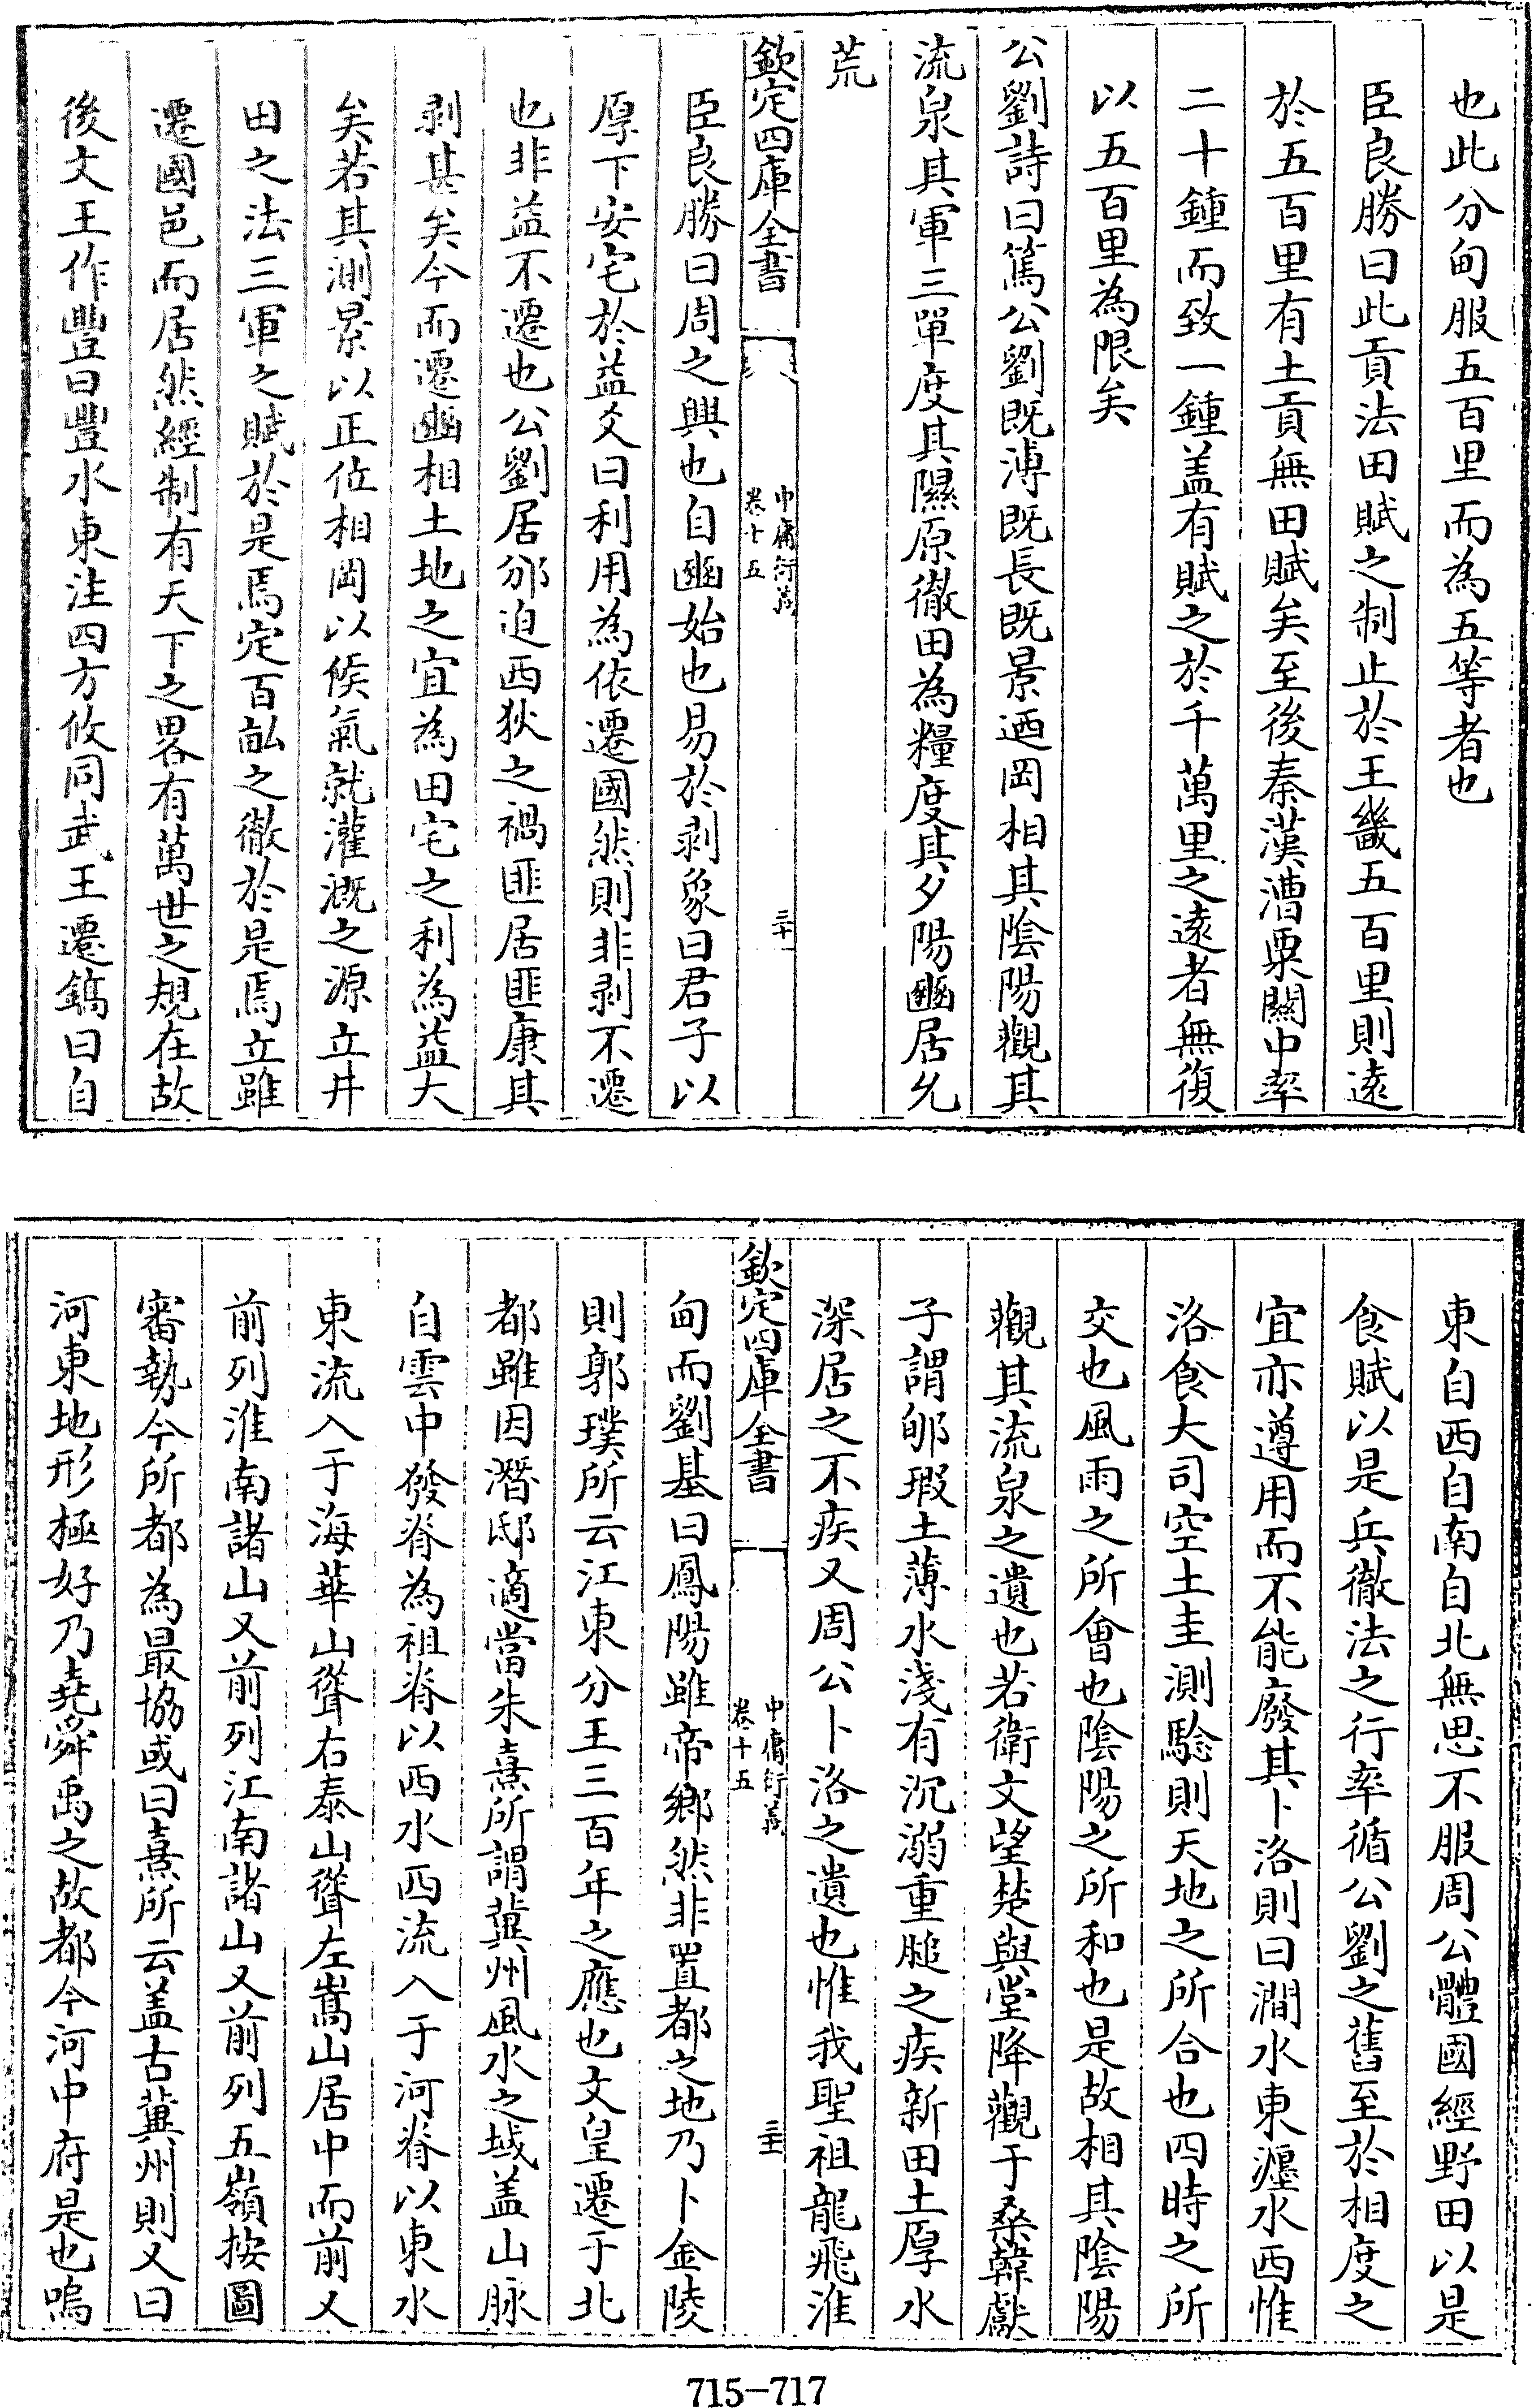 也此分甸服五百里而為五等者也
臣良勝曰此貢法田賦之制止於王畿五百里則逺
於五百里有土貢無田賦矣至後秦漢漕粟關中率
二十鍾而致一鍾盖有賦之於千萬里之逺者無復
以五百里為限矣
公劉詩曰篤公劉既溥既長既景迺岡相其隂陽觀其
流泉其軍三單度其隰原徹田為糧度其夕陽豳居允
荒
欽定四庫全書
中庸衍義
卷十五
三十
臣良勝曰周之興也自豳始也易於剥象曰君子以
厚下安宅於益爻曰利用為依遷國然則非剥不遷
也非益不遷也公劉居邠迫西狄之禍匪居匪康其
剥甚矣今而遷豳相土地之宜為田宅之利為益大
矣若其測景以正位相岡以候氣就灌溉之源立井
田之法三軍之賦於是焉定百畝之徹於是焉立雖
遷國邑而居然經制有天下之畧有萬世之規在故
後文王作豐曰豐水東注四方攸同武王遷鎬曰自
東自西自南自北無思不服周公體國經野田以是
食賦以是兵徹法之行率循公劉之舊至於相度之
宜亦遵用而不能廢其卜洛則曰澗水東瀍水西惟
洛食大司空土圭測騐則天地之所合也四時之所
交也風雨之所會也隂陽之所和也是故相其隂陽
觀其流泉之遺也若衛文望楚與堂降觀于桑韓獻
子謂郇瑕土薄水淺有沉溺重膇之疾新田土厚水
深居之不疾又周公卜洛之遺也惟我聖祖龍飛淮
欽定四庫全書
中庸衍義
卷十五
三十一
甸而劉基曰鳳陽雖帝鄉然非置都之地乃卜金陵
則郭璞所云江東分王三百年之應也文皇遷于北
都雖因潛邸適當朱熹所謂冀州風水之域盖山脉
自雲中發脊為祖脊以西水西流入于河脊以東水
東流入于海華山聳右泰山聳左嵩山居中而前又
前列淮南諸山又前列江南諸山又前列五嶺按圖
審勢今所都為最協或曰熹所云盖古冀州則又曰
河東地形極好乃堯舜禹之故都今河中府是也嗚
715-717